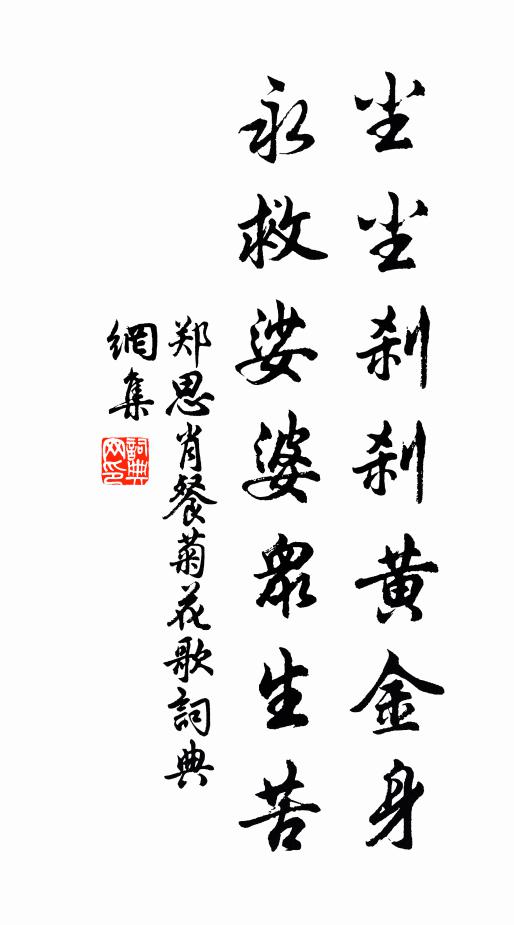 尘尘刹刹黄金身
永救娑婆眾生苦
郑思肖餐菊花歌詞典
網集
詞典
网印